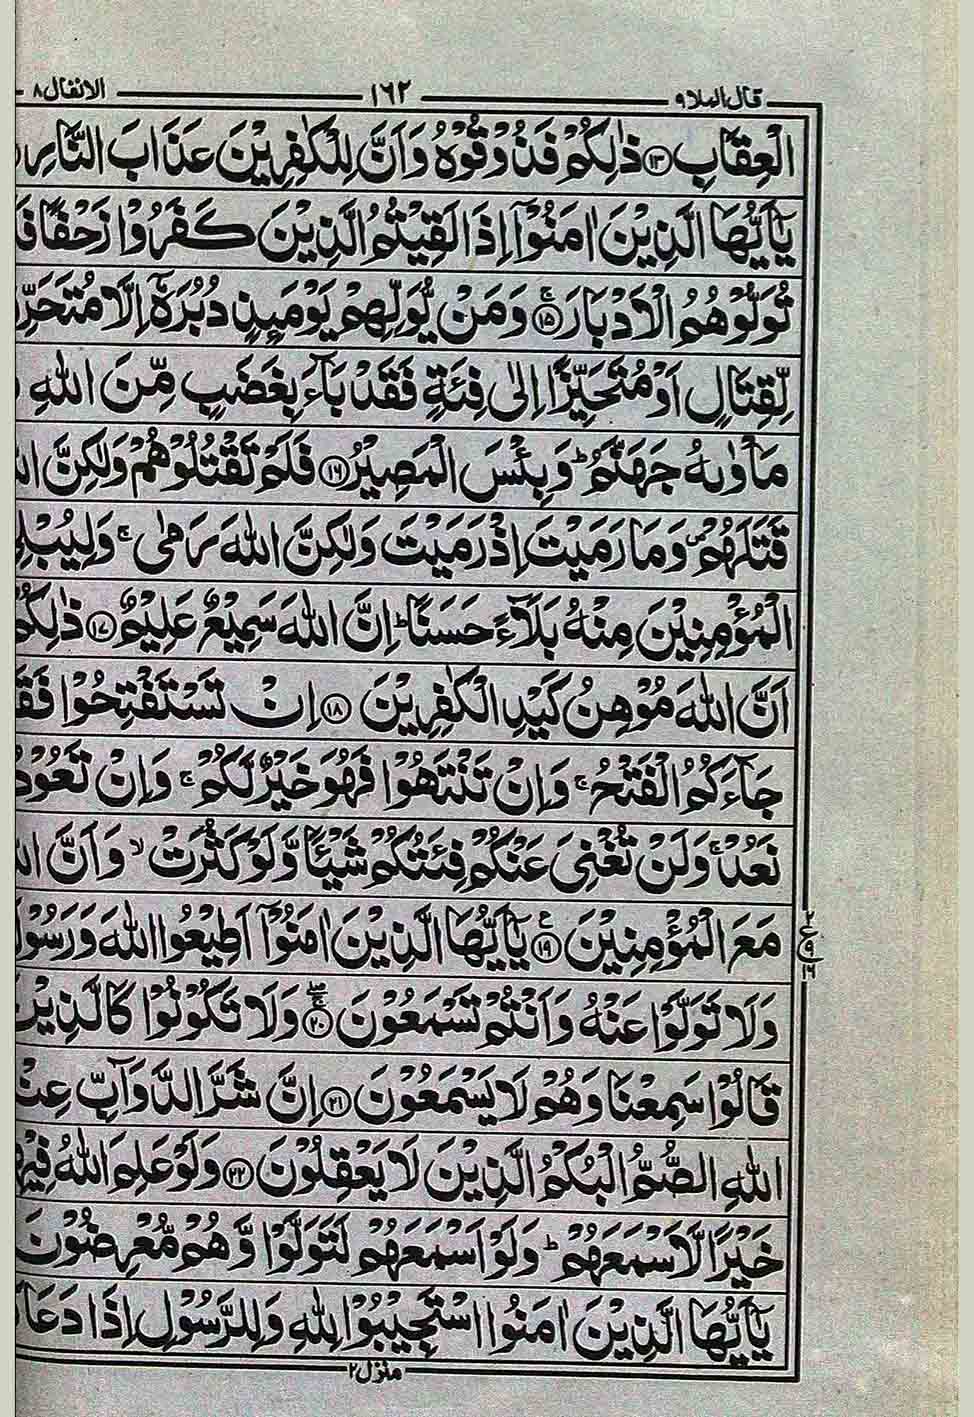 قال الملا ٩ ١٦٢ الانفال ٨
الْعِقَابِ ۝١٣ ذٰلِكُمْ فَذُوْقُوْهُ وَاَنَّ لِلْكٰفِرِيْنَ عَذَابَ النَّارِ
يٰۤاَيُّهَا الَّذِيْنَ اٰمَنُوْۤا اِذَا لَقِيْتُمُ الَّذِيْنَ كَفَرُوْا زَحْفًا فَ
تُوَلُّوْهُمُ الْاَدْبَارَ ۝١٥ۚ وَمَنْ يُّوَلِّهِمْ يَوْمَئِذٍ دُبُرَهٗۤ اِلَّا مُتَحَرِّ
لِّقِتَالٍ اَوْ مُتَحَيِّزًا اِلٰى فِئَةٍ فَقَدْ بَآءَ بِغَضَبٍ مِّنَ اللّٰهِ
مَاْوٰىهُ جَهَنَّمُ ؕ وَبِئْسَ الْمَصِيْرُ ۝١٦ فَلَمْ تَقْتُلُوْهُمْ وَلٰكِنَّ ال
قَتَلَهُمْ ۪ وَمَا رَمَيْتَ اِذْ رَمَيْتَ وَلٰكِنَّ اللّٰهَ رَمٰى ۚ وَلِيُبْلِ
الْمُؤْمِنِيْنَ مِنْهُ بَلَآءً حَسَنًا ؕ اِنَّ اللّٰهَ سَمِيْعٌ عَلِيْمٌ ۝١٧ ذٰلِكُمْ
اَنَّ اللّٰهَ مُوْهِنُ كَيْدِ الْكٰفِرِيْنَ ۝١٨ اِنْ تَسْتَفْتِحُوْا فَقَ
جَآءَكُمُ الْفَتْحُ ۚ وَاِنْ تَنْتَهُوْا فَهُوَ خَيْرٌ لَّكُمْ ۚ وَاِنْ تَعُوْدُ
نَعُدْ ۚ وَلَنْ تُغْنِىَ عَنْكُمْ فِئَتُكُمْ شَيْـًٔا وَّلَوْ كَثُرَتْ ۙ وَاَنَّ ال
مَعَ الْمُؤْمِنِيْنَ ۝١٩ ع يٰۤاَيُّهَا الَّذِيْنَ اٰمَنُوْۤا اَطِيْعُوا اللّٰهَ وَرَسُوْلَ
وَلَا تَوَلَّوْا عَنْهُ وَاَنْتُمْ تَسْمَعُوْنَ ۝٢٠ۚۖ وَلَا تَكُوْنُوْا كَالَّذِيْنَ
قَالُوْا سَمِعْنَا وَهُمْ لَا يَسْمَعُوْنَ ۝٢١ اِنَّ شَرَّ الدَّوَآبِّ عِنْ
اللّٰهِ الصُّمُّ الْبُكْمُ الَّذِيْنَ لَا يَعْقِلُوْنَ ۝٢٢ وَلَوْ عَلِمَ اللّٰهُ فِيْهِ
خَيْرًا لَّاَسْمَعَهُمْ ؕ وَلَوْ اَسْمَعَهُمْ لَتَوَلَّوْا وَّهُمْ مُّعْرِضُوْنَ
يٰۤاَيُّهَا الَّذِيْنَ اٰمَنُوا اسْتَجِيْبُوْا لِلّٰهِ وَلِلرَّسُوْلِ اِذَا دَعَا
منزل ٢